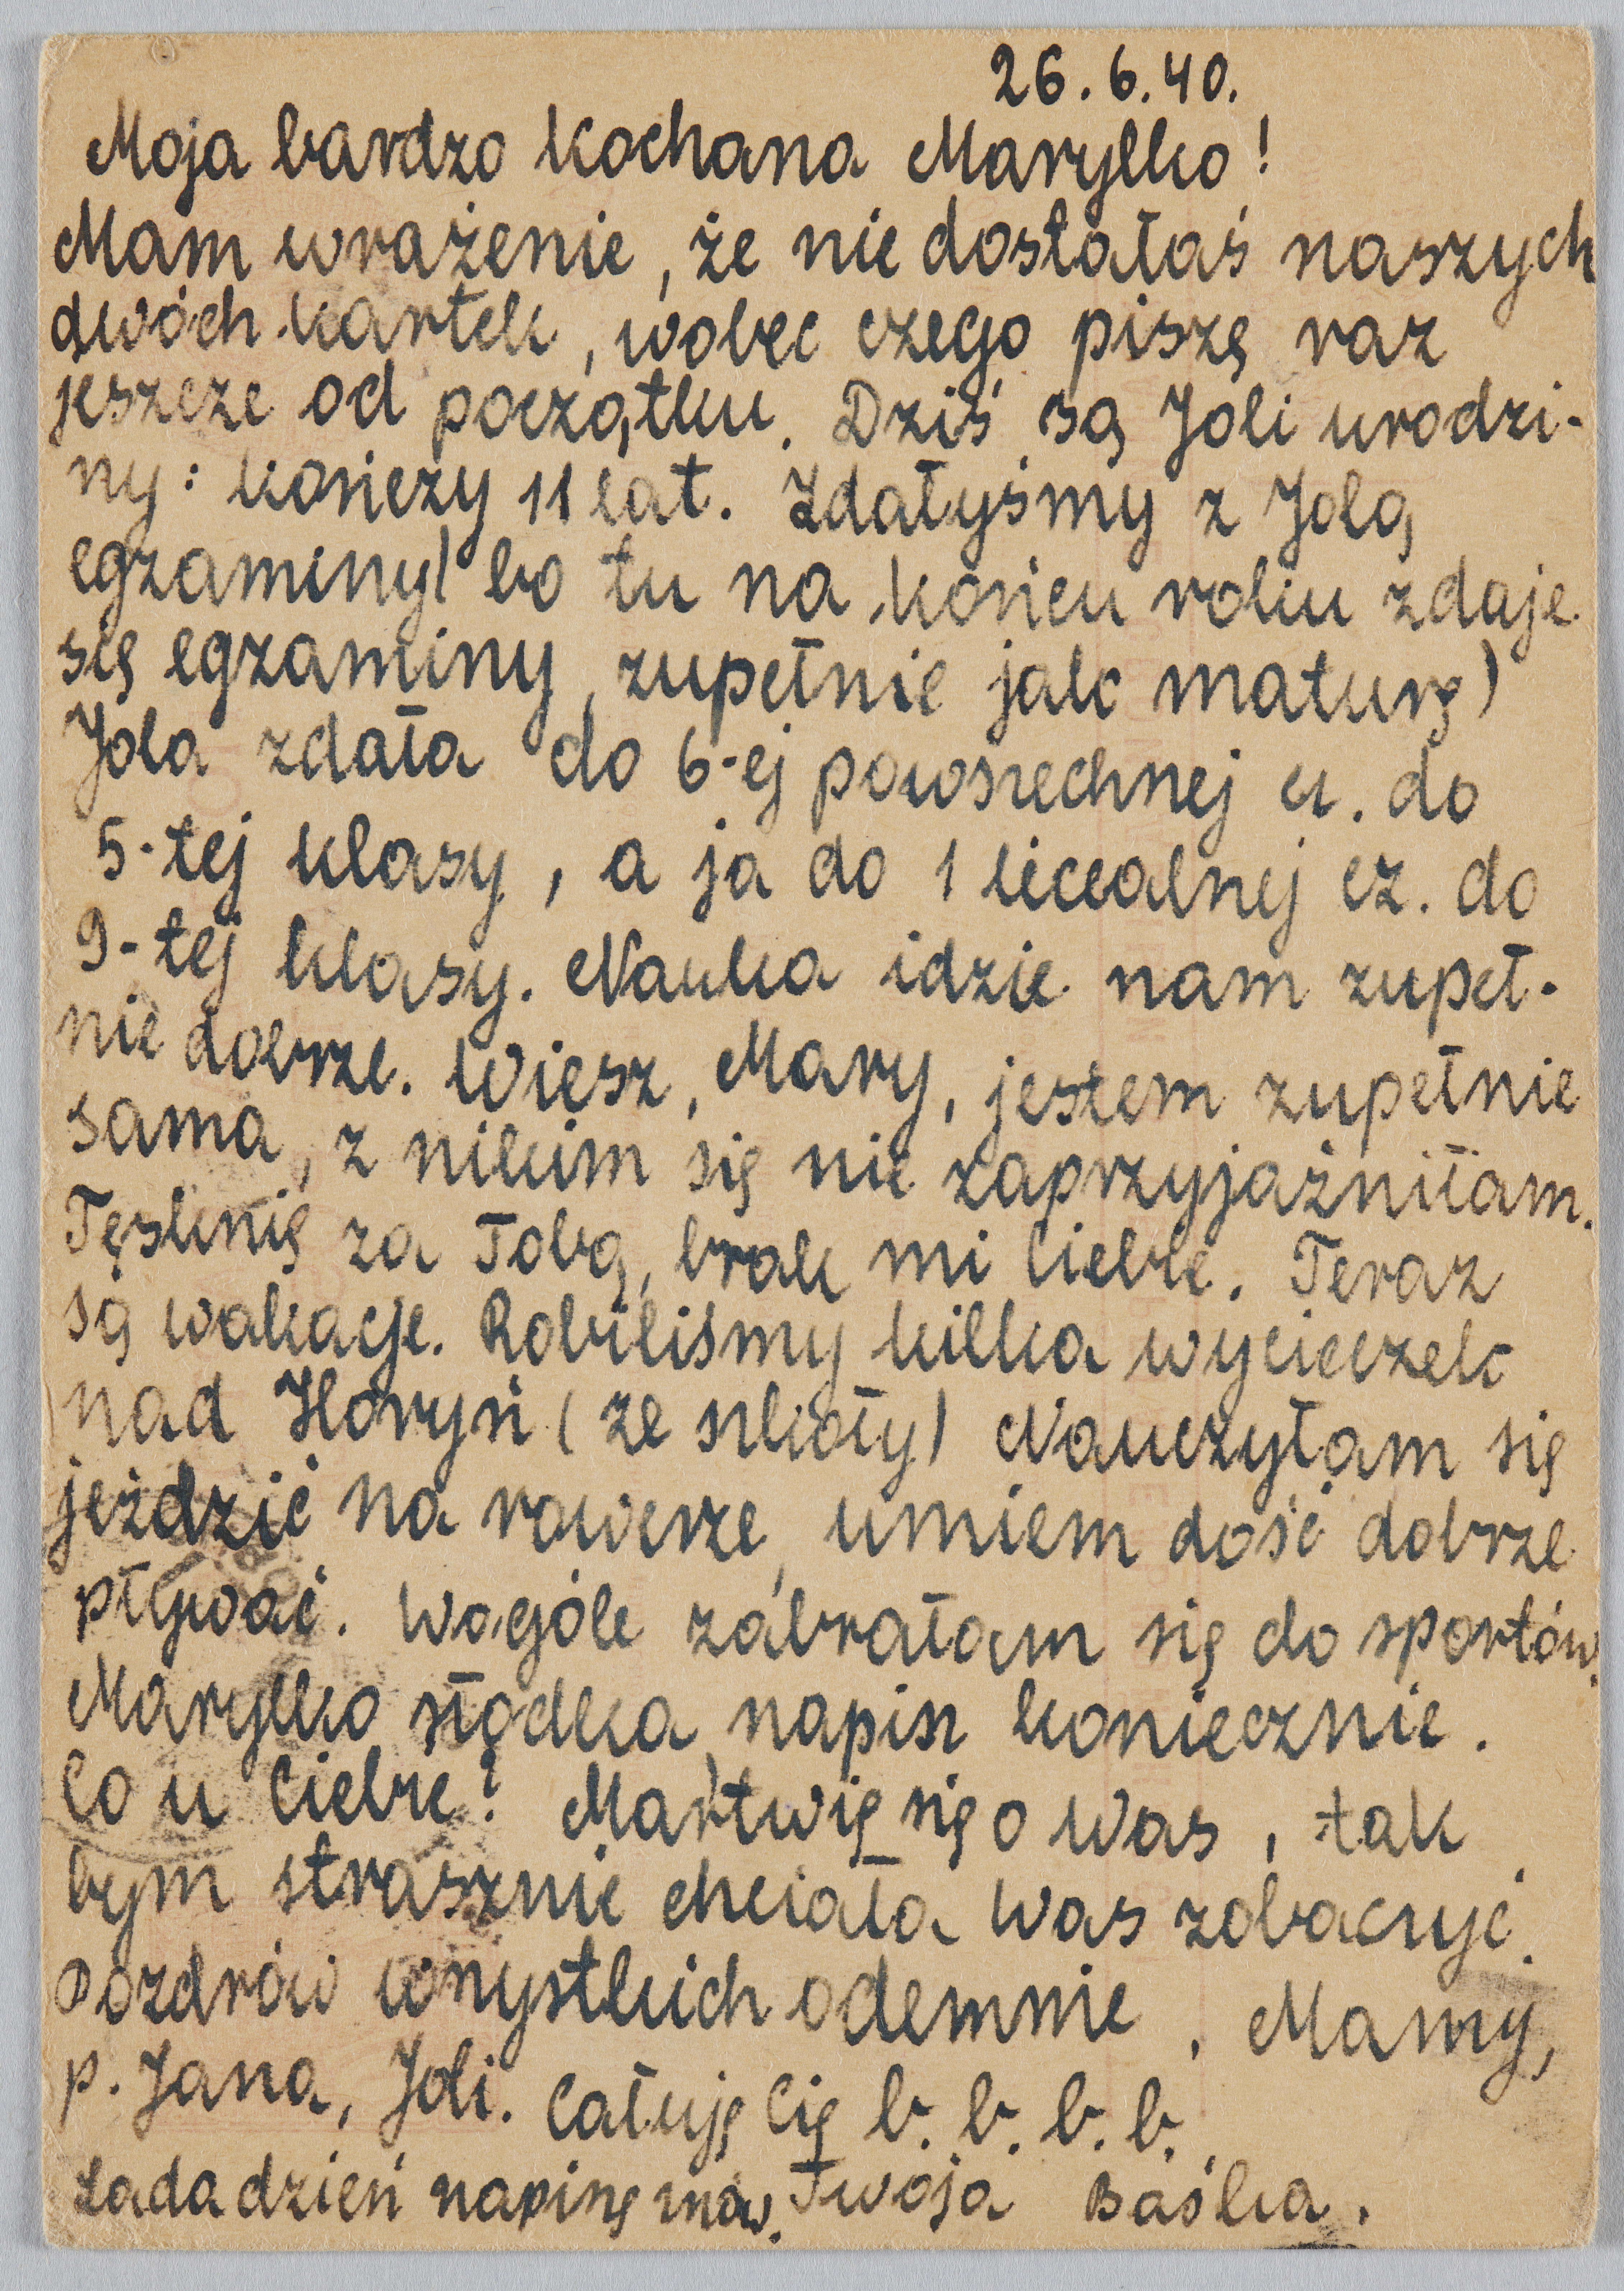 26.6.40.
Moja bardzo kochana Marylko!
Mam wrażenie, że nie dostałaś naszych
dwóch kartek, wobec czego piszę raz
jeszcze od początku. Dziś są Joli urodzi-
ny: kończy 11 lat. Zdałyśmy z Jolą
egzaminy (bo tu na końcu roku zdaje
się egzaminy, zupełnie jak maturę)
Jola zdała do 6-ej powszechnej cz. do
5-tej klasy, a ja do 1 licealnej cz. do
9-tej klasy. Nauka idzie nam zupeł-
nie dobrze. Wiesz, Mary, jestem zupełnie
sama, z nikim się nie zaprzyjaźniłam.
Tęsknię za Tobą, brak mi Ciebie. Teraz
są wakacje. Robiliśmy kilka wycieczek
nad Horyń (ze szkoły) Nauczyłam się
jeździć na rowerze, umiem dość dobrze
pływać. Wogóle zabrałam się do sportów.
Marylko słodka, napisz koniecznie.
Co u Ciebie? Martwię się o Was, tak
bym strasznie chciała Was zobaczyć.
Pozdrów wszystkich odemnie, Mamy,
p. Jana, Joli. Całuję Cię b. b. b. b.
Lada dzień napiszę znów. Twoja Baśka.